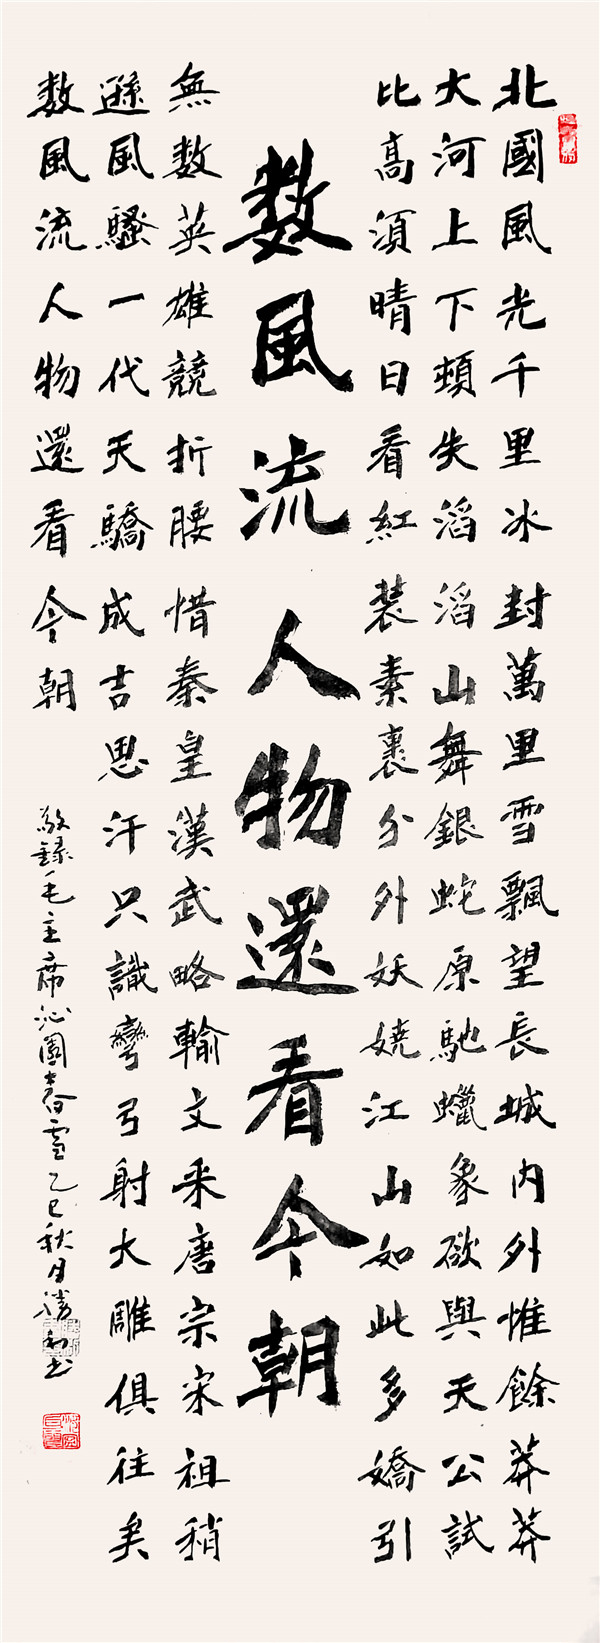 北國風光千里冰封萬里雪飄望長城內外惟餘莽莽
大河上下頓失滔滔山舞銀蛇原馳蠟象欲與天公試
比高須晴日看紅裝素裹分外妖嬈江山如此多嬌引
数風流人物還看今朝
無数英雄競折腰惜秦皇漢武略輸文采唐宗宋祖稍
遜風騷一代天驕成吉思汗只識彎弓射大雕俱往矣
数風流人物還看今朝
敬錄毛主席沁園春雪乙巳秋月勝利書